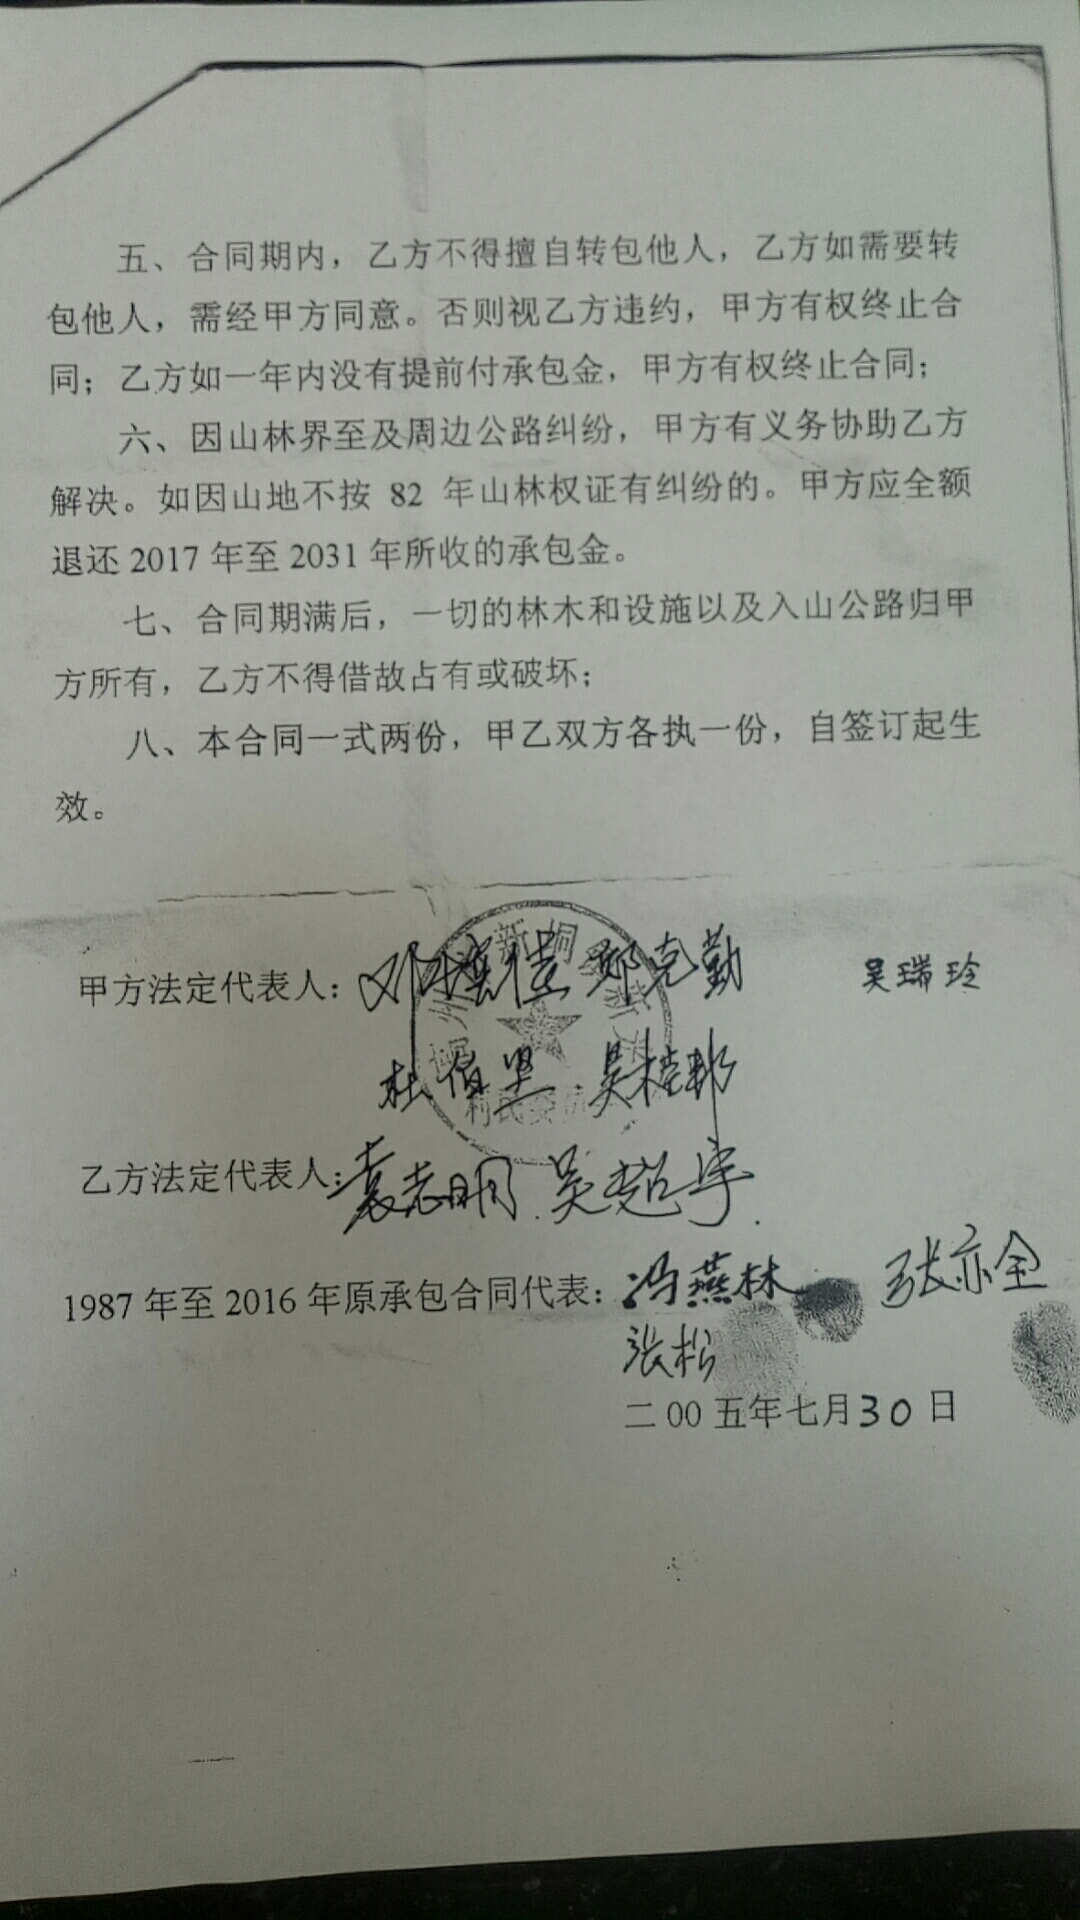 五、合同期内，乙方不得擅自转包他人，乙方如需要转
包他人，需经甲方同意。否则视乙方违约，甲方有权终止合
同；乙方如一年内没有提前付承包金，甲方有权终止合同；
六、因山林界至及周边公路纠纷，甲方有义务协助乙方
解决。如因山地不按 82 年山林权证有纠纷的。甲方应全额
退还 2017 年至 2031 年所收的承包金。
七、合同期满后，一切的林木和设施以及入山公路归甲
方所有，乙方不得借故占有或破坏；
八、本合同一式两份，甲乙双方各执一份，自签订起生
效。
新桐
甲方法定代表人： 邓克勤 吴瑞玲
杜佰坚 吴桂邦
乙方法定代表人：袁志明 吴超宇
1987 年至 2016 年原承包合同代表：冯燕林 张亦全
张松
二 00 五年七月30日